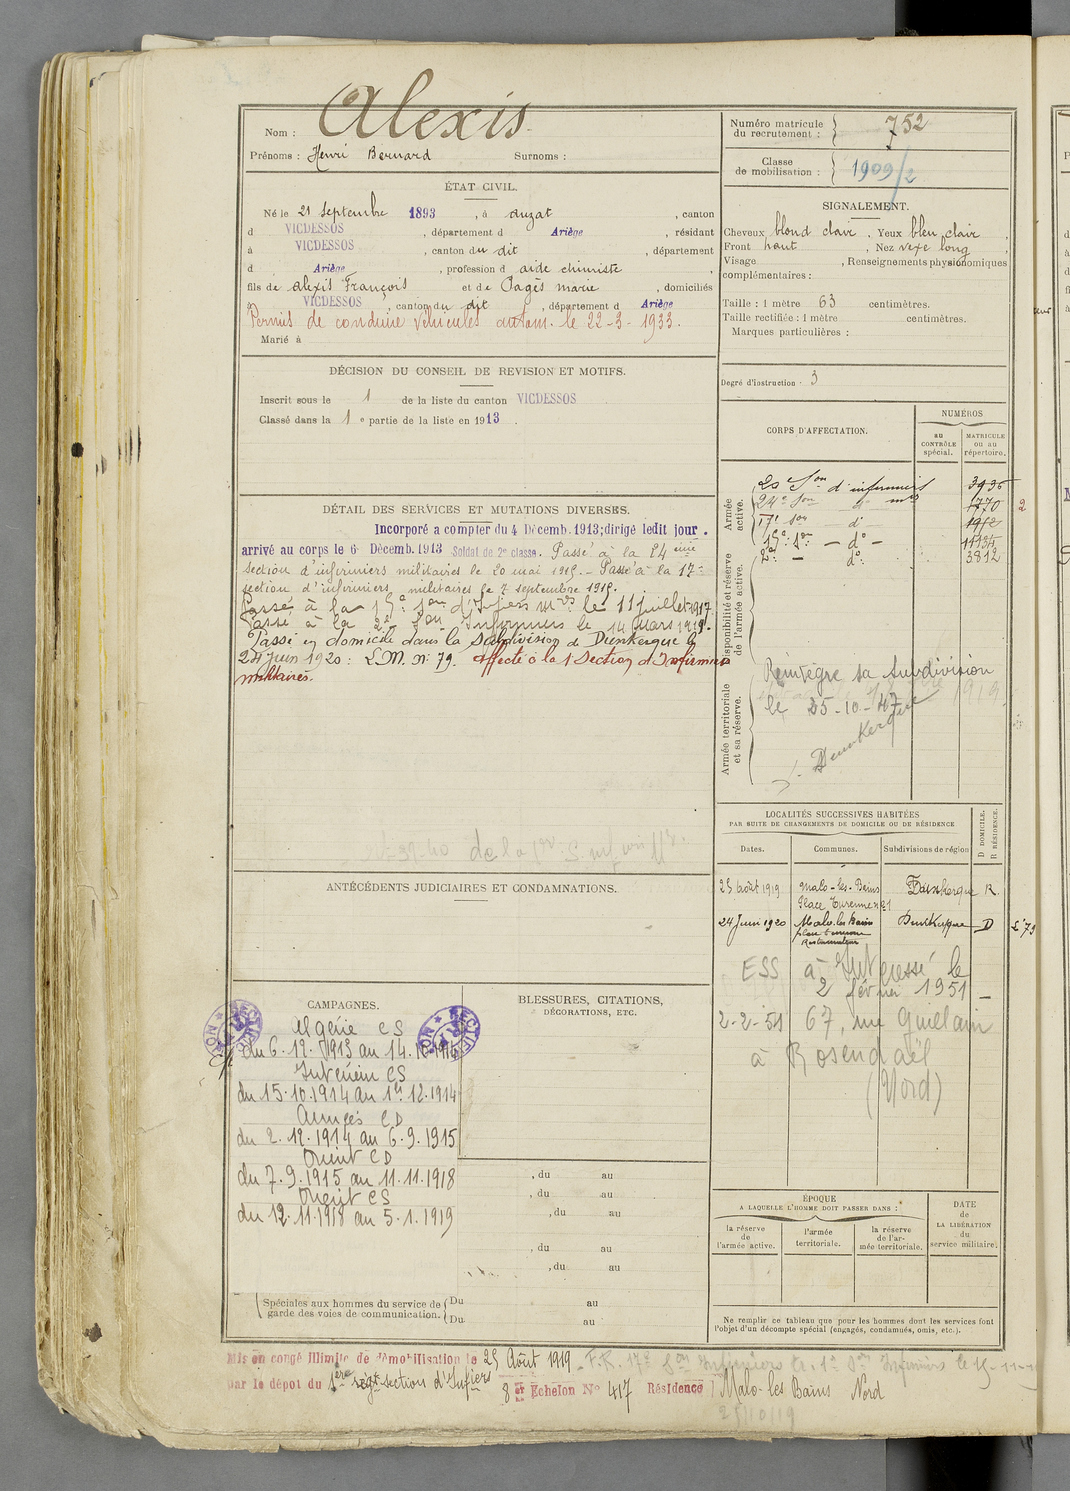 Nom : Alexis
Prénoms : Henri Bernard Surnoms :
Numéro matricule du recrutement : 752
Classe de mobilisation : 1909/2
ÉTAT CIVIL.
Né le 21 Septembre 1893, à Auzat, canton
d VICDESSOS, département d Ariège, résidant
à VICDESSOS, canton du dit, département
d Ariège, profession d aide chimiste,
fils de Alexis François et de Pagès Marie, domiciliés
à VICDESSOS, canton du dit, département d Ariège
Permis de conduire véhicules autom. le 22-3-1933.
Marié à
SIGNALEMENT.
Cheveux blond clair. Yeux bleu clair,
Front haut, Nez vexe long,
Visage, Renseignements physionomiques
complémentaires :
Taille : 1 mètre 63 centimètres.
Taille rectifiée : 1 mètre centimètres.
Marques particulières :
Degré d'instruction : 3
DÉCISION DU CONSEIL DE REVISION ET MOTIFS.
Inscrit sous le 1 de la liste du canton VICDESSOS
Classé dans la 1e partie de la liste en 1913.
CORPS D'AFFECTATION.
NUMÉROS
au CONTRÔLE spécial.
MATRICULE ou au répertoire.
Armée active.
Son d'infirmiers
24e Son d° mres 1770 2
17e Son d° 1912
15e Son — d° —
2e — d° 3812
Disponibilité et réserve de l'armée active.
Armée territoriale et sa réserve.
Réintègre sa subdivision
le 25-10-47
Dunkerque
DÉTAIL DES SERVICES ET MUTATIONS DIVERSES.
Incorporé a compter du 4 Décemb. 1913; dirigé ledit jour.
arrivé au corps le 6 Décemb. 1913 Soldat de 2e classe. Passé à la 24eme
section d'infirmiers militaires le 20 mai 1915. Passé à la 17e
section d'infirmiers militaires le 7 septembre 1915.
Passé à la 15e Son d'Infiers Mres le 11 juillet 1917
Passé à la 2e Son Infirmiers le 14 Mars 1919.
Passé en domicile dans la subdivision de Dunkerque le
24 Juin 1920 : L.M. n° 79. affecté à la 1 Section d'Infirmiers
militaires.
ANTÉCÉDENTS JUDICIAIRES ET CONDAMNATIONS.
LOCALITÉS SUCCESSIVES HABITÉES
PAR SUITE DE CHANGEMENTS DE DOMICILE OU DE RÉSIDENCE
Dates. Communes. Subdivisions de région D DOMICILE. R RÉSIDENCE.
25 Août 1919 Malo-les-Bains Dunkerque R.
Place Turenne
24 Juin 1920 Malo les Bains Dunkerque D L° 79
place Turenne
Restaurateur
ESS le
2 février 1951
2-2-51 67, rue Guilain
à Rosendaël
(Nord)
CAMPAGNES.
Algérie CS
du 6.12.1913 au 14.10.1914
Intérieur CS
du 15.10.1914 au 1er 12.1914
Armées CD
du 2.12.1914 au 6.9.1915
Orient CD
du 7.9.1915 au 11.11.1918
Orient CS
du 12.11.1918 au 5.1.1919
BLESSURES, CITATIONS,
DÉCORATIONS, ETC.
, du au
, du au
, du au
, du au
, du au
Spéciales aux hommes du service de garde des voies de communication.
Du au
Du au
ÉPOQUE
A LAQUELLE L'HOMME DOIT PASSER DANS :
la réserve de l'armée active.
l'armée territoriale.
la réserve de l'armée territoriale.
DATE de LA LIBÉRATION du service militaire.
Ne remplir ce tableau que pour les hommes dont les services font
l'objet d'un décompte spécial (engagés, condamnés, omis, etc.).
Mis en congé illimité de démobilisation le 25 Août 1919
par le dépôt du 1ère section d'Infiers 8 Echelon N° 417 Résidence Malo-les Bains Nord